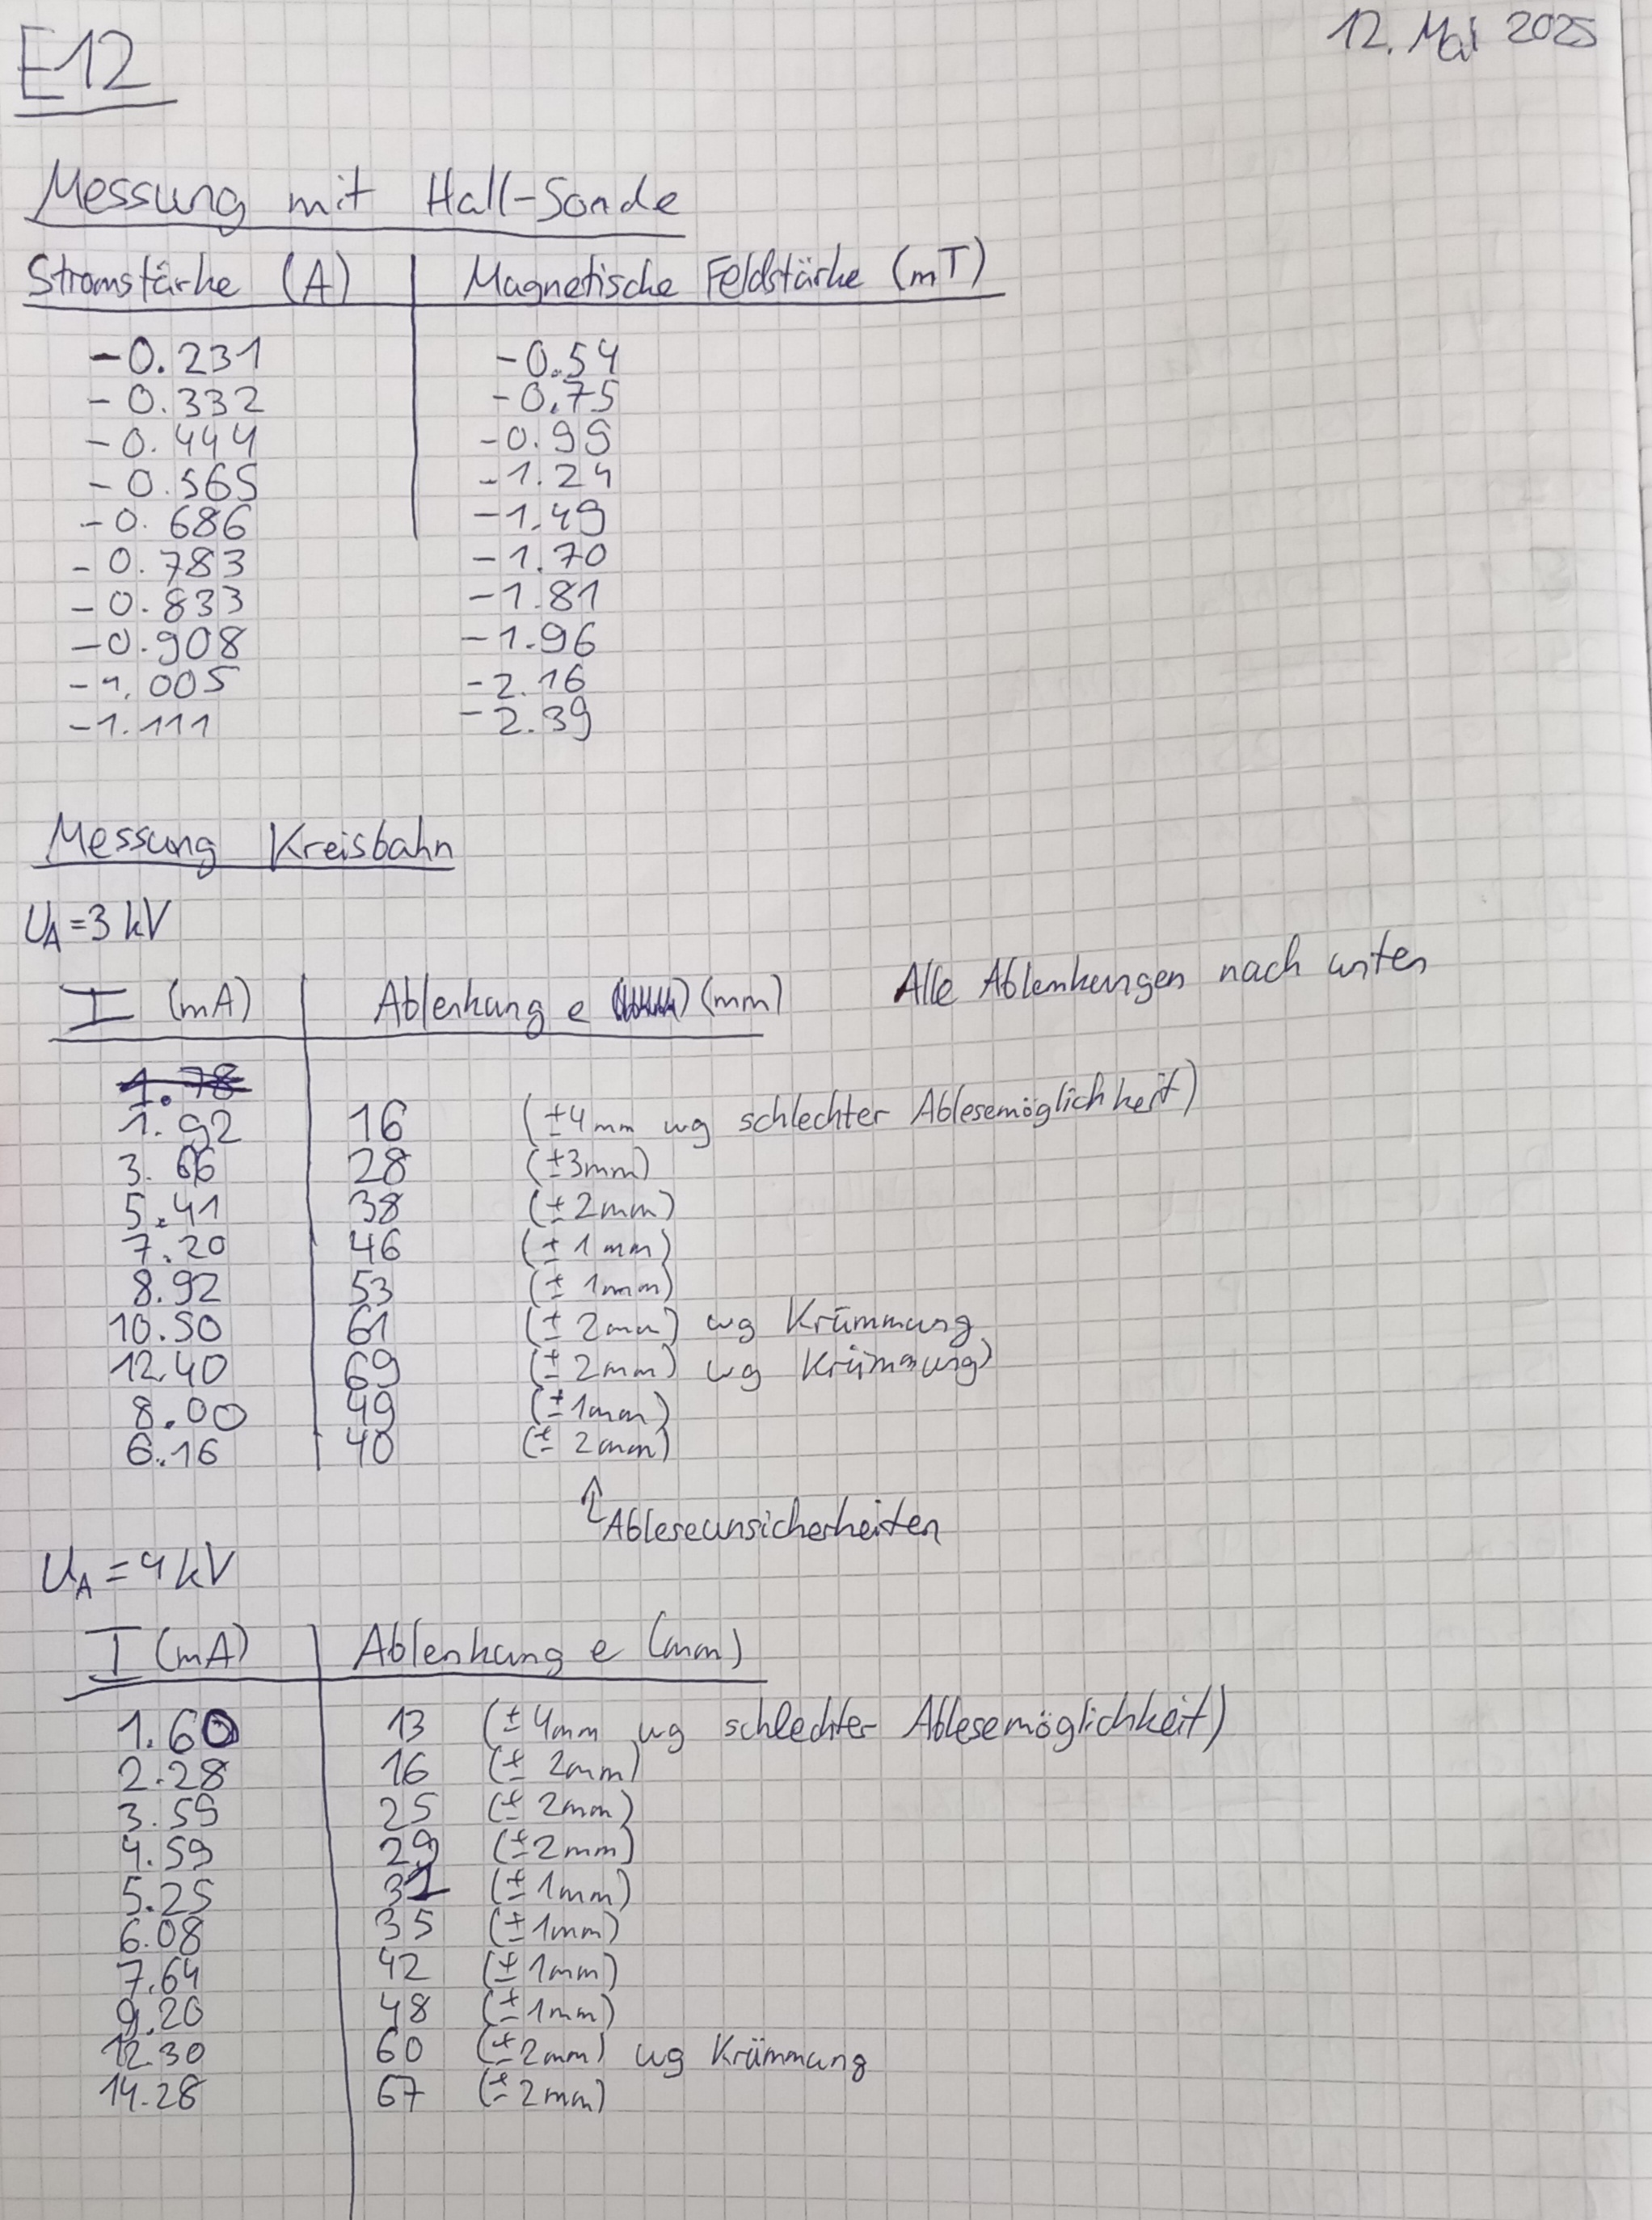 E12
12. Mai 2025
Messung mit Hall-Sonde
Stromstärke (A) | Magnetische Feldstärke (mT)
-0.231 -0.54
-0.332 -0.75
-0.444 -0.99
-0.565 -1.24
-0.686 -1.49
-0.783 -1.70
-0.833 -1.81
-0.908 -1.96
-1.005 -2.16
-1.111 -2.39
Messung Kreisbahn
U_A = 3 kV
I (mA) | Ablenkung e (mm) Alle Ablenkungen nach unten
1.78
1.92 16 (±4mm wg schlechter Ablesemöglichkeit)
3.66 28 (±3mm)
5.41 38 (±2mm)
7.20 46 (±1mm)
8.92 53 (±1mm)
10.50 61 (±2mm) wg Krümmung
12.40 69 (±2mm) wg Krümmung)
8.00 49 (±1mm)
6.16 40 (±2mm)
↑ Ableseunsicherheiten
U_A = 4 kV
I (mA) | Ablenkung e (mm)
1.60 13 (±4mm wg schlechter Ablesemöglichkeit)
2.28 16 (±2mm)
3.59 25 (±2mm)
4.59 29 (±2mm)
5.25 32 (±1mm)
6.08 35 (±1mm)
7.64 42 (±1mm)
9.20 48 (±1mm)
12.30 60 (±2mm) wg Krümmung
14.28 67 (±2mm)